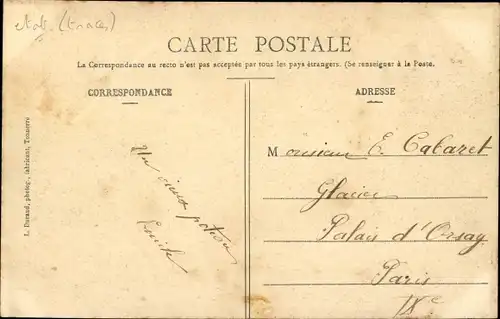 (traces)
CARTE POSTALE
La Correspondance au recto n'est pas acceptée par tous les pays étrangers. (Se renseigner à la Poste.
CORRESPONDANCE
ADRESSE
L. Durand, photog., fabricant, Tonnerre
Un
Emile
Monsieur E. Cabaret
Glacier
Palais d'Orsay
Paris